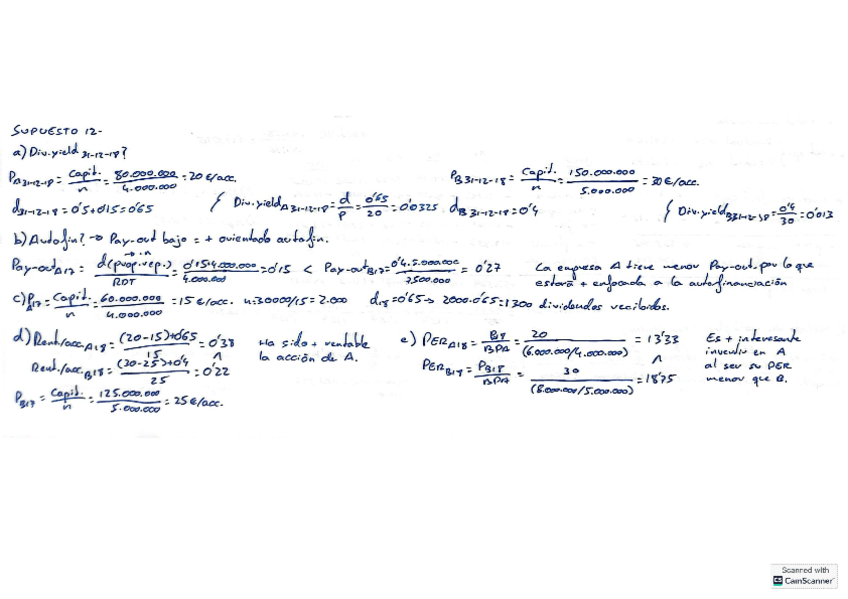 SUPUESTO 12-
a) Div.yield 31-12-18?
PA31-12-18 = Capit./n = 80.000.000/4.000.000 = 20 €/acc.
PB31-12-18 = Capit./n = 150.000.000/5.000.000 = 30 €/acc.
d31-12-18 = 0'5+0'15 = 0'65
Div.yieldA31-12-18 = d/P = 0'65/20 = 0'0325
dB31-12-18 = 0'4
Div.yieldB31-12-18 = 0'4/30 = 0'013
b) Autofin? → Pay-out bajo = + orientado autofin.
Pay-outA17 = d(prop.rep.)·n/BDT = 0'15·4.000.000/4.000.000 = 0'15 < Pay-outB17 = 0'4·5.000.000/7.500.000 = 0'27
La empresa A tiene menor Pay-out, por lo que
estará + enfocada a la autofinanciación
c) PA17 = Capit./n = 60.000.000/4.000.000 = 15 €/acc. n=30000/15 = 2.000 d18 = 0'65 → 2000·0'65 = 1300 dividendos recibidos.
d) Rent/accA18 = (20-15)+0'65/15 = 0'38
Ha sido + rentable
la acción de A.
^
Rent/accB18 = (30-25)+0'4/25 = 0'22
PB17 = Capit./n = 125.000.000/5.000.000 = 25 €/acc.
e) PERA18 = P18/BPA = 20/(6.000.000/4.000.000) = 13'33
^
PERB18 = PB18/BPA = 30/(8.000.000/5.000.000) = 18'75
Es + interesante
invertir en A
al ser su PER
menor que B.
Scanned with
CS CamScanner